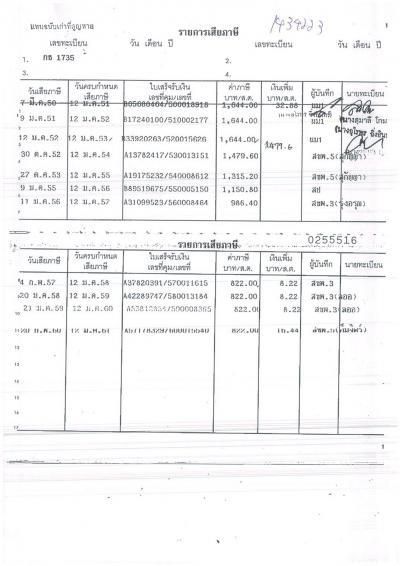 แทนฉบับเก่าที่สูญหาย
รายการเสียภาษี
K434223
1
เลขทะเบียน วัน เดือน ปี เลขทะเบียน วัน เดือน ปี
1. กธ 1735 2.
3. 4.
วันเสียภาษี วันครบกำหนดเสียภาษี ใบเสร็จรับเงิน เลขที่คุม/เลขที่ ค่าภาษี บาท/ส.ต. เงินเพิ่ม บาท/ส.ต. ผู้บันทึก นายทะเบียน
7 มี.ค.50 12 ม.ค.51 B05680464/500018918 1,644.00 32.88 ผม1
9 ม.ค.51 12 ม.ค.52 B17240100/510002177 1,644.00 ผม1
12 ม.ค.52 12 ม.ค.53 B33920263/520015626 1,644.00 ผม1
1479.6
30 ต.ค.52 12 ม.ค.54 A13782417/530013151 1,479.60 สขพ.5
27 ต.ค.53 12 ม.ค.55 A19175232/540008612 1,315.20 สขพ.5
9 ม.ค.55 12 ม.ค.56 B89519675/555005150 1,150.80
11 ม.ค.56 12 ม.ค.57 A31099523/560008464 986.40 สขพ.3
รายการเสียภาษี
0255516
วันเสียภาษี วันครบกำหนดเสียภาษี ใบเสร็จรับเงิน เลขที่คุม/เลขที่ ค่าภาษี บาท/ส.ต. เงินเพิ่ม บาท/ส.ต. ผู้บันทึก นายทะเบียน
4 ก.พ.57 12 ม.ค.58 A37820391/570011615 822.00 8.22 สขพ.3
20 ม.ค.58 12 ม.ค.59 A42289747/580013184 822.00 8.22 สขพ.3(ลออ)
21 ม.ค.59 12 ม.ค.60 822.00 8.22 สขพ.3(ลออ)
20 ก.พ.60 12 ม.ค.61 822.00 16.44 สขพ.5
1